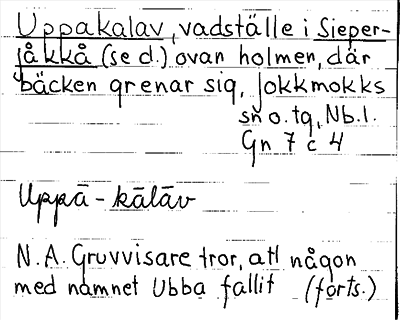 Uppakalav, vadställe i Sieper-
jåkkå (se d.) ovan holmen, där
bäcken grenar sig, Jokkmokks
sn o. tg, Nb. l.
Gn 7 c 4
Uppā - kālāv
N. A. Gruvvisare tror, att någon
med namnet Ubba fallit (forts.)